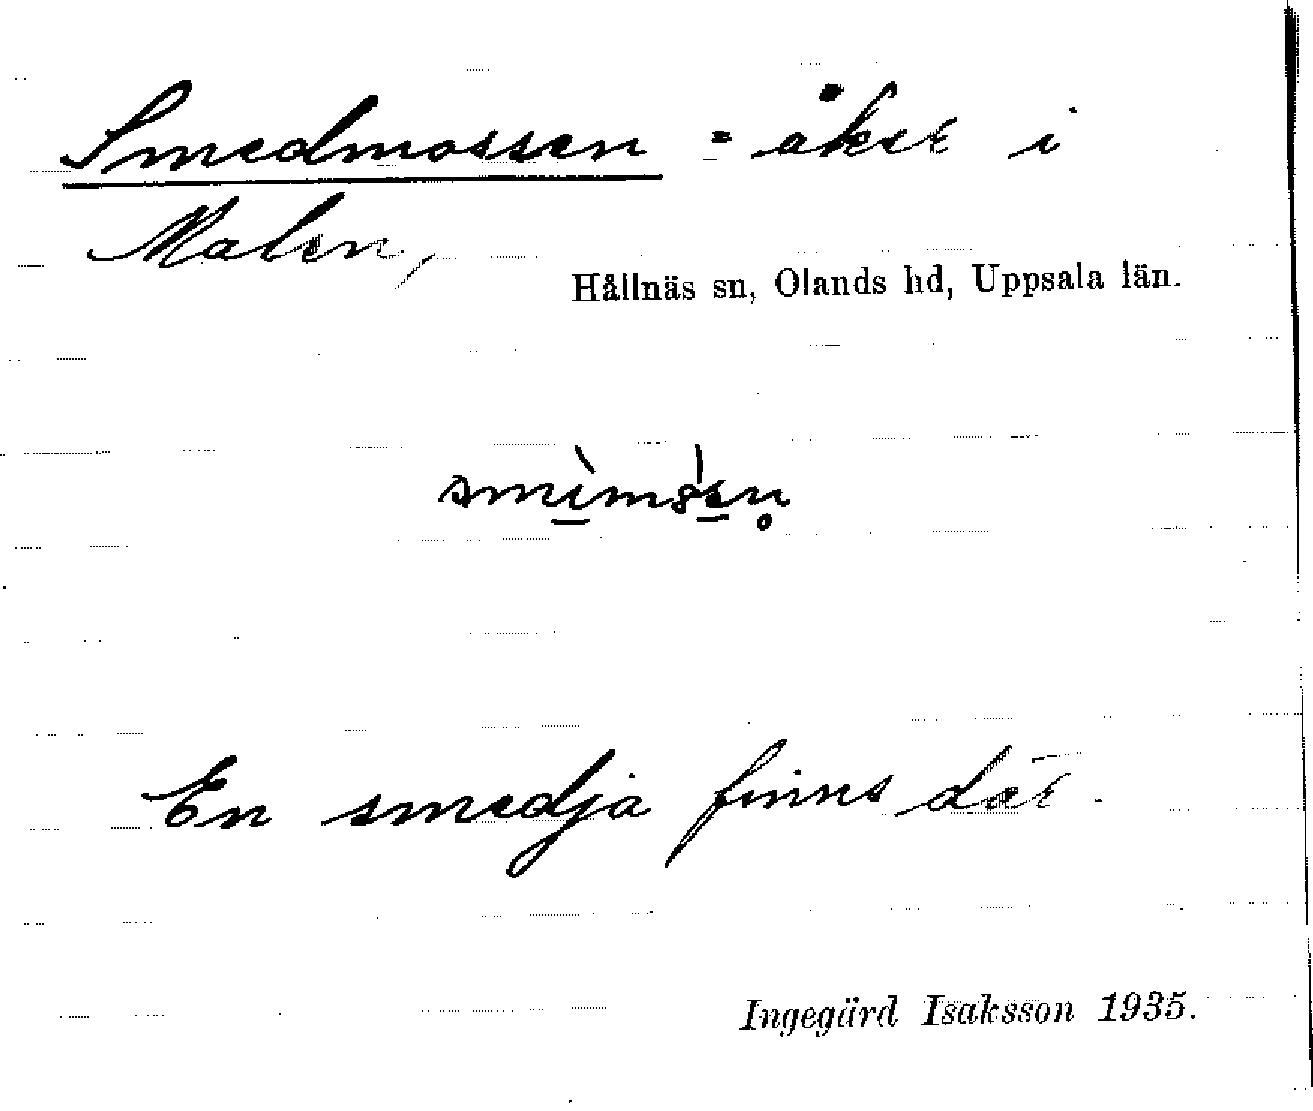 Smedmossen = åker i
Malen,
Hållnäs sn, Olands hd, Uppsala län.
En smedja finns där.
Ingegärd Isaksson 1935.